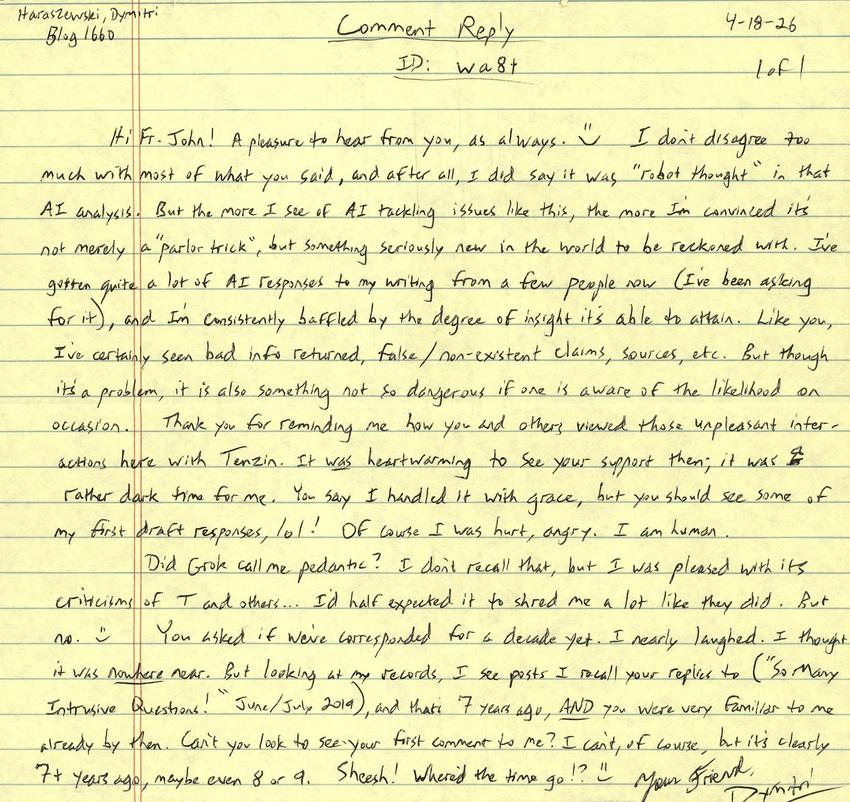 Haraszewski, Dymitri
Blog 1660
Comment Reply
ID: wa8t
4-18-26
1 of 1
Hi Fr. John! A pleasure to hear from you, as always. I don't disagree too
much with most of what you said, and after all, I did say it was "robot thought" in that
AI analysis. But the more I see of AI tackling issues like this, the more I'm convinced it's
not merely a "parlor trick", but something seriously new in the world to be reckoned with. I've
gotten quite a lot of AI responses to my writing from a few people now (I've been asking
for it), and I'm consistently baffled by the degree of insight it's able to attain. Like you,
I've certainly seen bad info returned, false/non-existent claims, sources, etc. But though
it's a problem, it is also something not so dangerous if one is aware of the likelihood on
occasion. Thank you for reminding me how you and others viewed those unpleasant inter-
actions here with Tenzin. It was heartwarming to see your support then; it was a
rather dark time for me. You say I handled it with grace, but you should see some of
my first draft responses, lol! Of course I was hurt, angry. I am human.
Did Grok call me pedantic? I don't recall that, but I was pleased with its
criticisms of T and others... I'd half expected it to shred me a lot like they did. But
no. You asked if we've corresponded for a decade yet. I nearly laughed. I thought
it was nowhere near. But looking at my records, I see posts I recall your replies to ("So Many
Intrusive Questions!" June/July 2019), and that's 7 years ago, AND you were very familiar to me
already by then. Can't you look to see your first comment to me? I can't, of course, but it's clearly
7+ years ago, maybe even 8 or 9. Sheesh! Where'd the time go!? Your Friend,
Dymitri